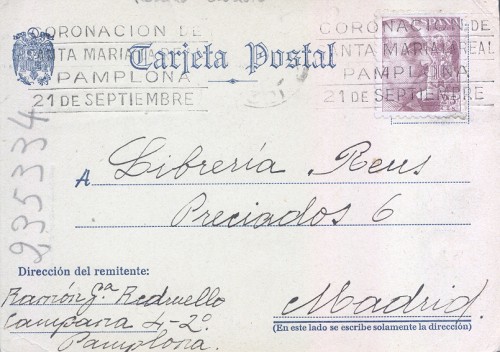 CORONACION DE
SANTA MARIA LA REAL
PAMPLONA
21 DE SEPTIEMBRE
Tarjeta Postal
CORONACION DE
SANTA MARIA LA REAL
PAMPLONA
21 DE SEPTIEMBRE
935334
A Librería Reus
Preciados 6
Dirección del remitente:
Ramón Gª
Campana 4-2º
Pamplona.
Madrid.
(En este lado se escribe solamente la dirección)